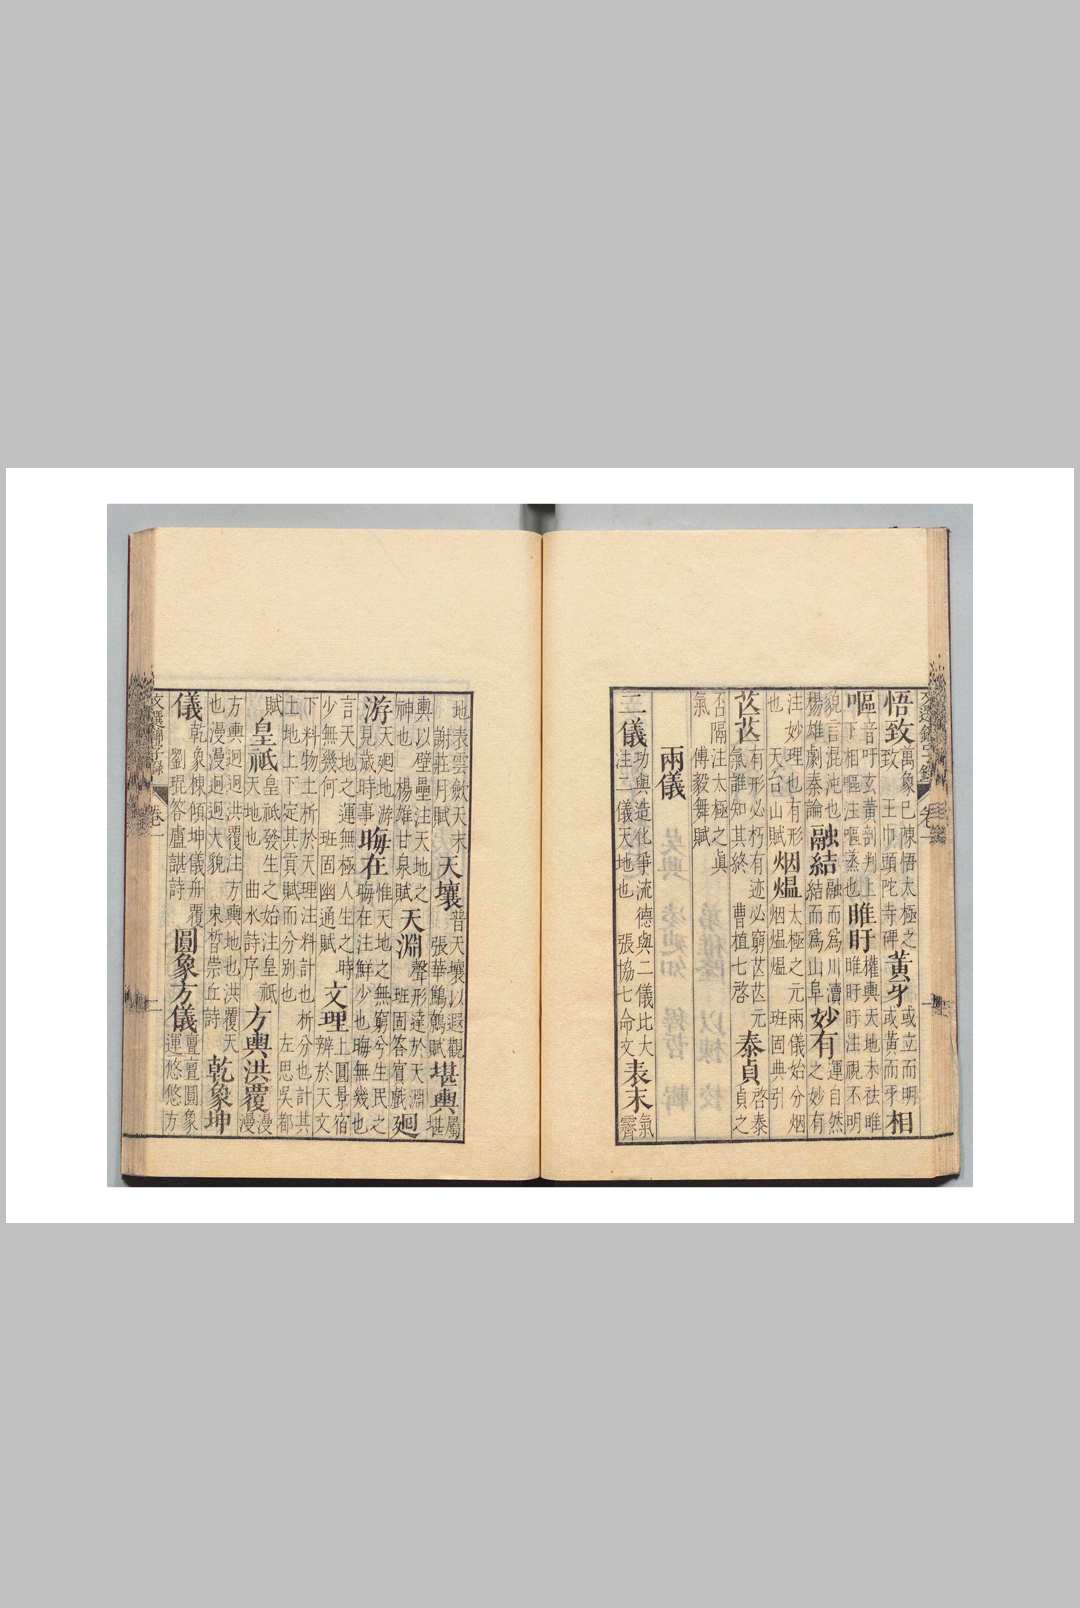 悟致 萬象已陳悟太極之致 王巾頭陀寺碑 黃牙 或立而明或黃而牙 相
嘔 音吁玄黃剖判上下相嘔注嘔蒸也 睢盱 權輿天地未祛睢睢盱盱注視不明
貌言混沌也 楊雄劇秦論 融結 融而為川瀆結而為山阜 妙有 運自然之妙有
注妙理也有形也 天台山賦 烟熅 太極之元兩儀始分烟烟熅熅 班固典引
芒芒 有形必朽有迹必窮芒芒元氣誰知其終 曹植七啓 泰貞 啓泰貞之
否隔注太極之眞氣 傅毅舞賦
兩儀
二儀 功與造化爭流德與二儀比大注二儀天地也 張協七命文 表末 氣霽
地表雲斂天末 謝莊月賦 天壤 普天壤以遐觀 張華鷦鷯賦 堪輿 屬堪
輿以壁壘注天地之神也 楊雄甘泉賦 天淵 聲形達於天淵 班固答賓戲 廻
游 天廻地游 見歲時事 晦在 惟天地之無窮兮生民之晦在注鮮少也晦無幾也
言天地之運無極人生之時少無幾何 班固幽通賦 文理 上圓景宿辨於天文
下料物土析於天理注料計也析分也計其土地上下定其貢賦而分別也 左思吳都
賦 皇祇 皇祇發生之始注皇祇天地也 曲水詩序 方輿洪覆 漫漫
方輿迥迥洪覆注方輿地也洪覆天也漫漫迥迥大貌 束晳崇丘詩 乾象坤
儀 乾象棟傾坤儀舟覆 劉琨答盧諶詩 圓象方儀 亶亶圓象運悠悠方
卷一